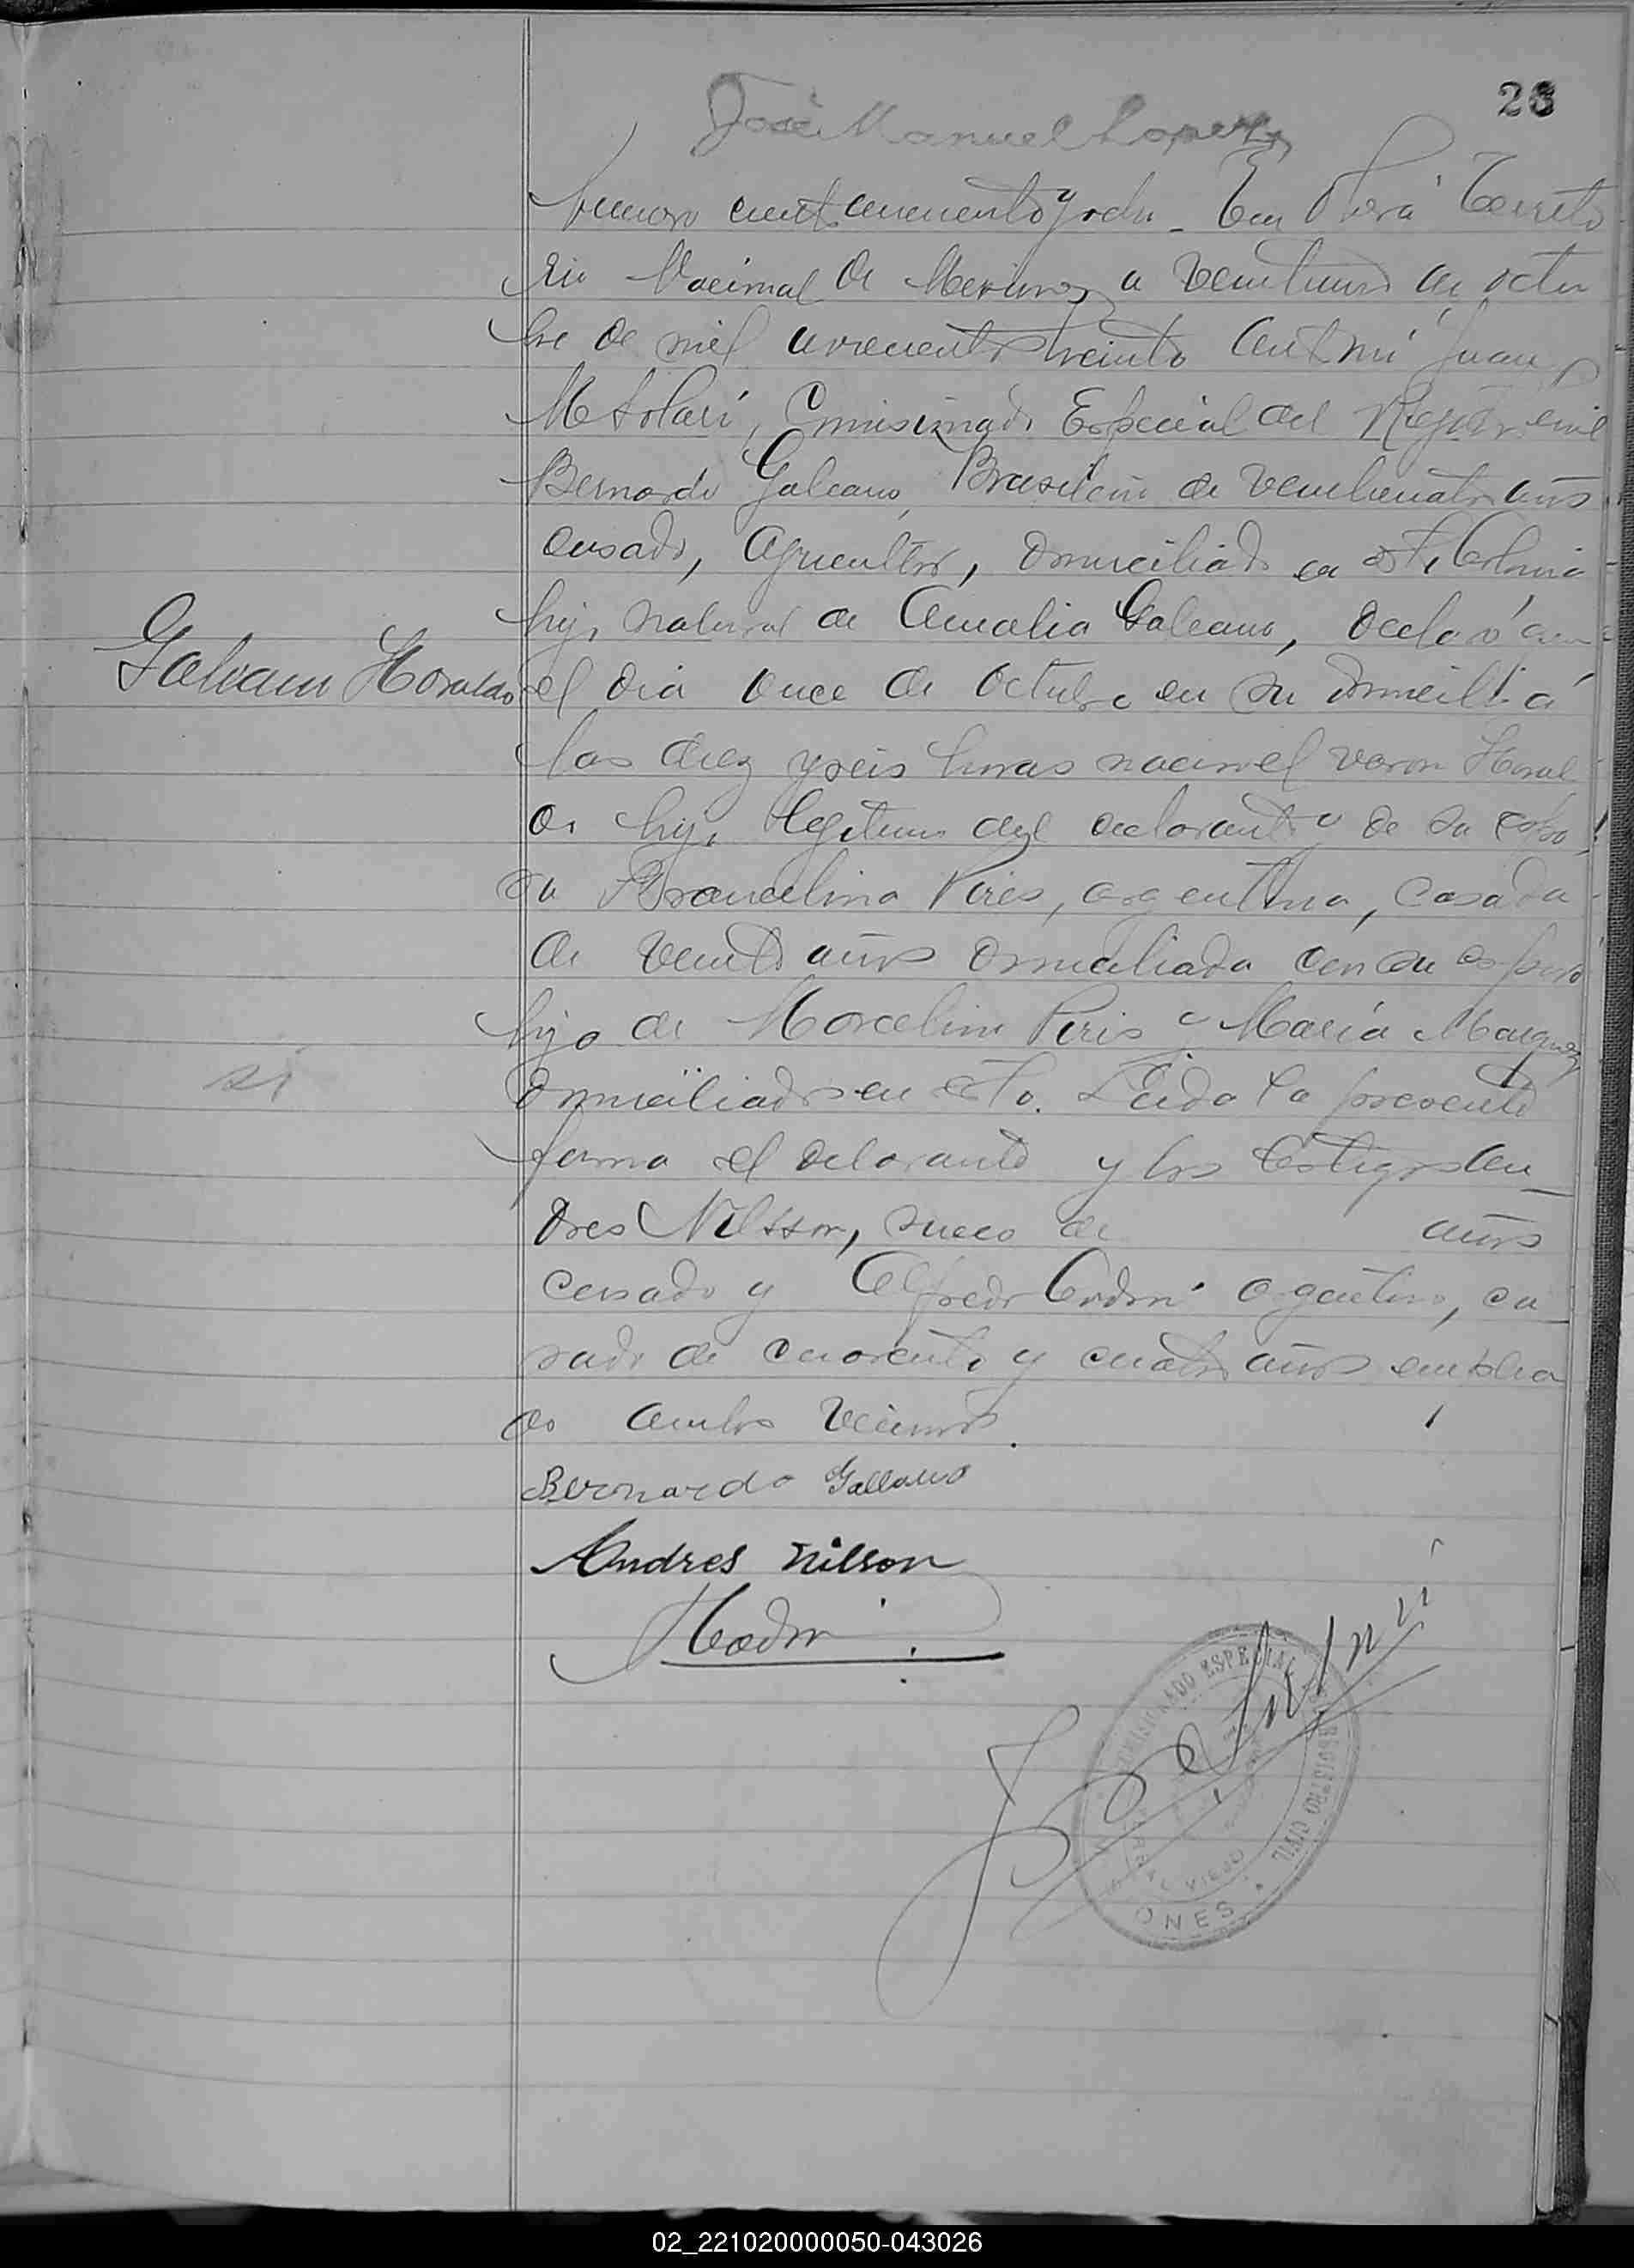 28
José Manuel Lopez
Numero ciento cincuenta y ocho. En Oberá Territo
rio Nacional de Misiones a veintiuno de octu
bre de mil novecientos treinta Ante mi Juan
M Solari, Comisionado Especial del Registro Civil
Bernardo Galeano, Brasileño de veinticuatro años
casado, agricultor, domiciliado en esta Colonia
hijo natural de Amalia Galeano, declaró que
Galeano Horaldo
el dia once de Octubre en su domicilio á
las diez y seis horas nació el varon Horal
do hijo legitimo del declarante y de su espo
sa Francelina Pires, argentina, casada
de veinte años domiciliada con su esposo
hija de Marcelino Piris y María Marquez
si
domiciliados en esta. Leida la presente
firma el delarante y los testigos An
dres Nilsson, sueco de años
casado y Alfredo Codoni argentino, ca
sado de cuarenta y cuatro años emplea
do ambos vecinos.
Bernardo Galleano
Andres Nilsson
COMISIONADO ESPECIAL REGISTRO CIVIL
VIEJO
ONES
02_221020000050-043026